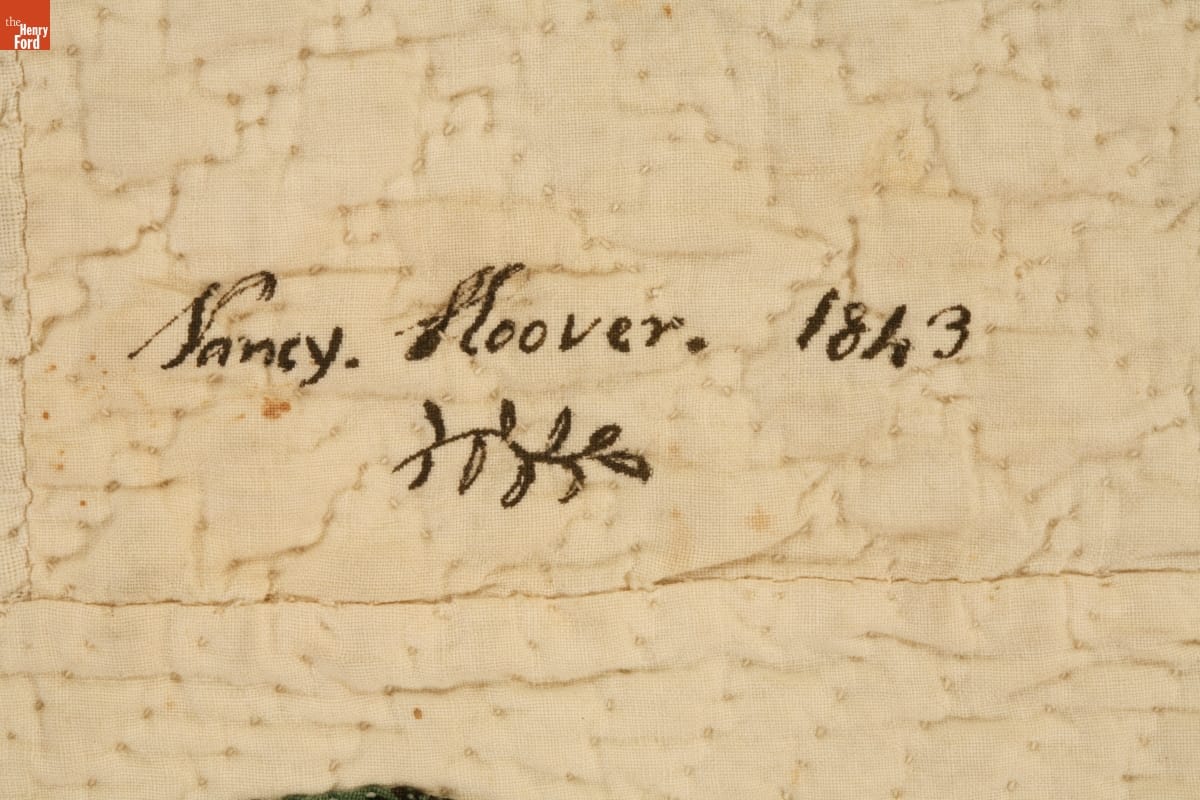 the
Henry
Ford
Nancy. Hoover. 1843